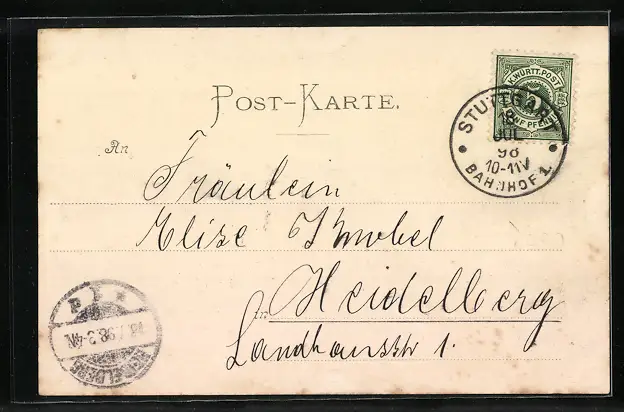 K. WÜRTT. POST
FÜNF PFENNIG
STUTTGART
18
JUL
98
10-11V
BAHNHOF 1.
POST-KARTE.
An
Fräulein
Elise Knobel
in Heidelberg
Landhausstr 1.
HEIDELBERG
98.3-4N